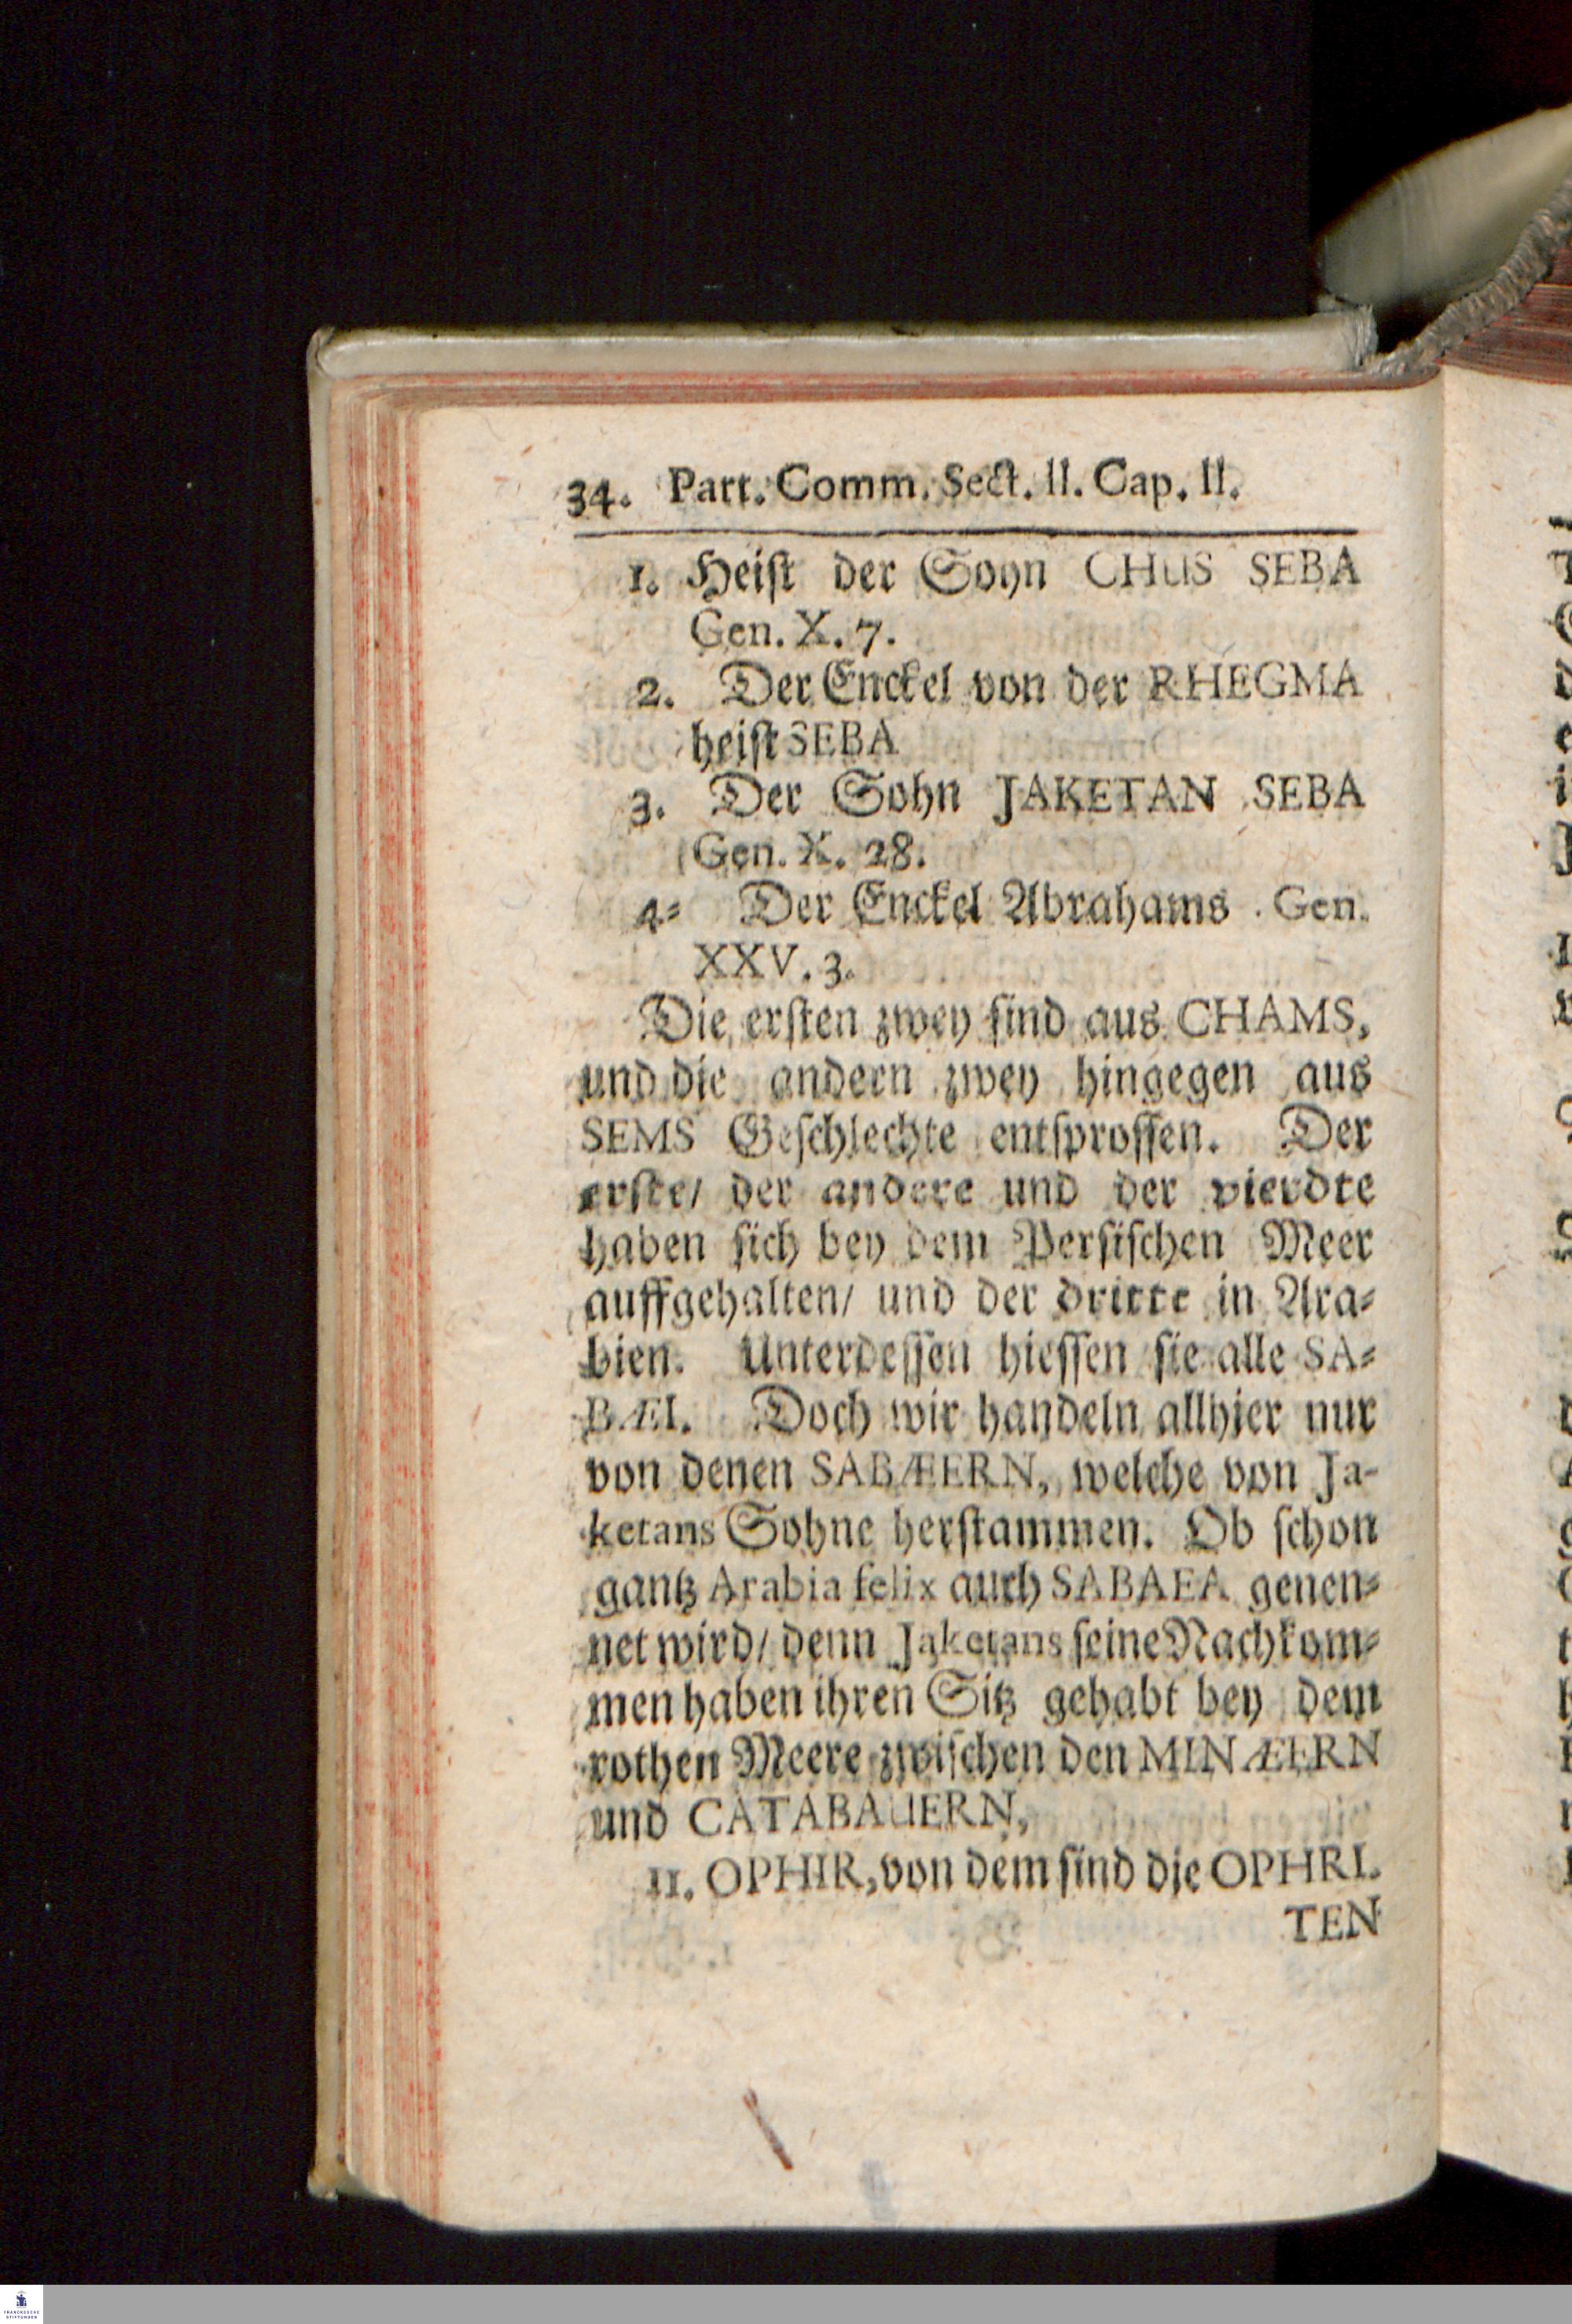 34. Part. Comm. Sect. II. Cap. II.
1. Heist der Sohn CHUS SEBA
Gen. X. 7.
2. Der Enckel von der RHEGMA
heist SEBA
3. Der Sohn JAKETAN SEBA
Gen. X. 28.
4= Der Enckel Abrahams. Gen.
XXV. 3.
Die ersten zwey sind aus CHAMS,
und die andern zwey hingegen aus
SEMS Geschlechte entsprossen. Der
erste/ der andere und der vierdte
haben sich bey dem Persischen Meer
auffgehalten/ und der dritte in Ara=
bien. Unterdessen hiessen sie alle SA=
BÆI. Doch wir handeln allhier nur
von denen SABÆERN, welche von Ja-
ketans Sohne herstammen. Ob schon
gantz Arabia felix auch SABAEA genen=
net wird/ denn Jaketans seine Nachkom=
men haben ihren Sitz gehabt bey dem
rothen Meere zwischen den MINÆERN
und CATABAUERN,
11. OPHIR, von dem sind die OPHRI.
TEN
FRANCKESCHE
STIFTUNGEN